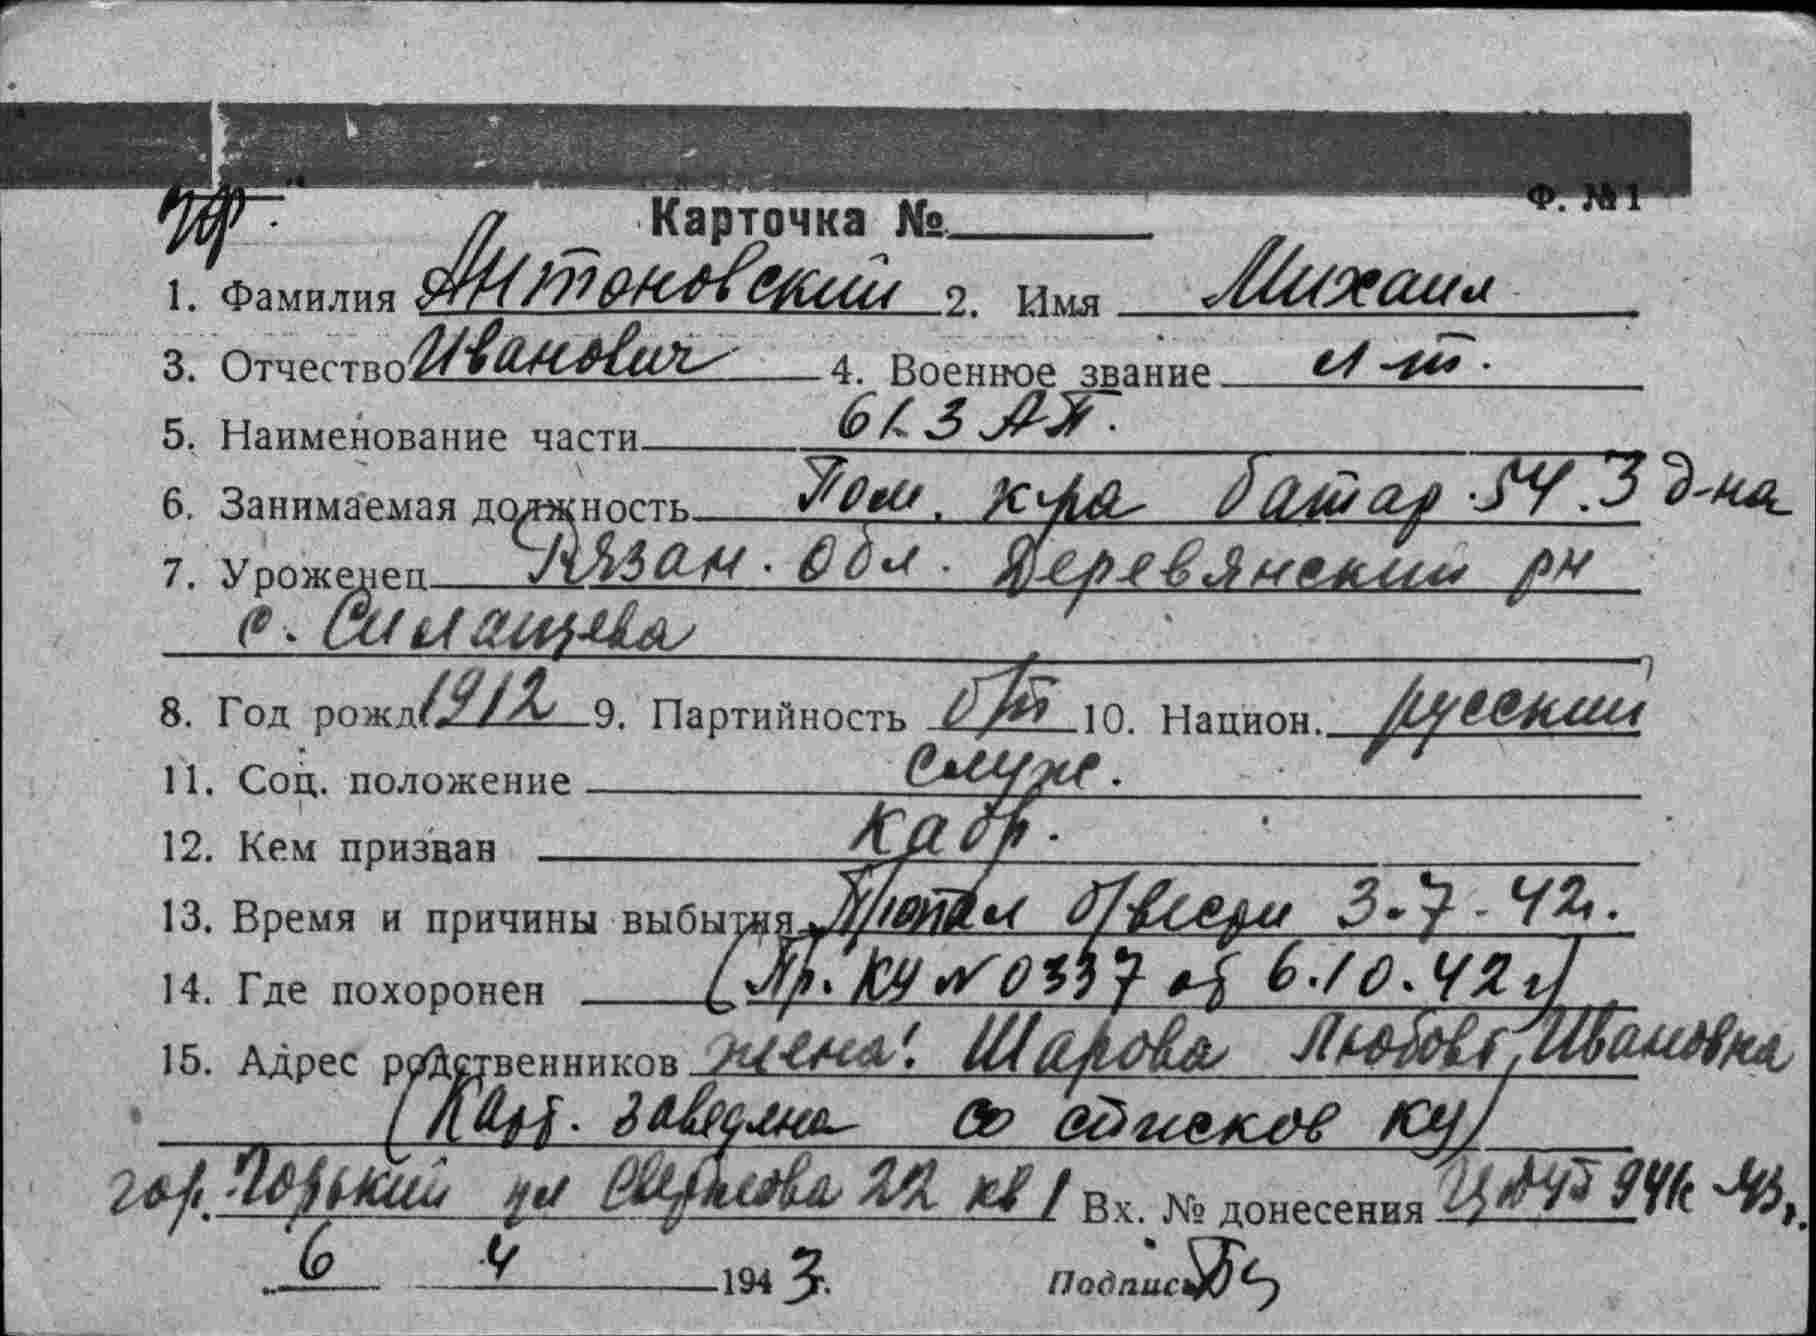 Ф. №1
Карточка №
1. Фамилия Антоновский 2. Имя Михаил
3. Отчество Иванович 4. Военное звание л-т.
5. Наименование части 613 АП.
6. Занимаемая должность Пом. к-ра батар. 54. 3 д-на
7. Уроженец Рязан. Обл. Деревянский рн
с. Силащева
8. Год рожд. 1912 9. Партийность б/п 10. Национ. русский
11. Соц. положение служ.
12. Кем призван кадр.
13. Время и причины выбытия Пропал б/вести 3-7-42г.
14. Где похоронен (Пр. КУ № 0337 от 6.10.42 г)
15. Адрес родственников жена: Шарова Любовь Ивановна
(Карт. заведена со списков КУ)
гор. Горький ул Свердлова 22 кв 1 Вх. № донесения 94
6 4 1943г.
Подпись